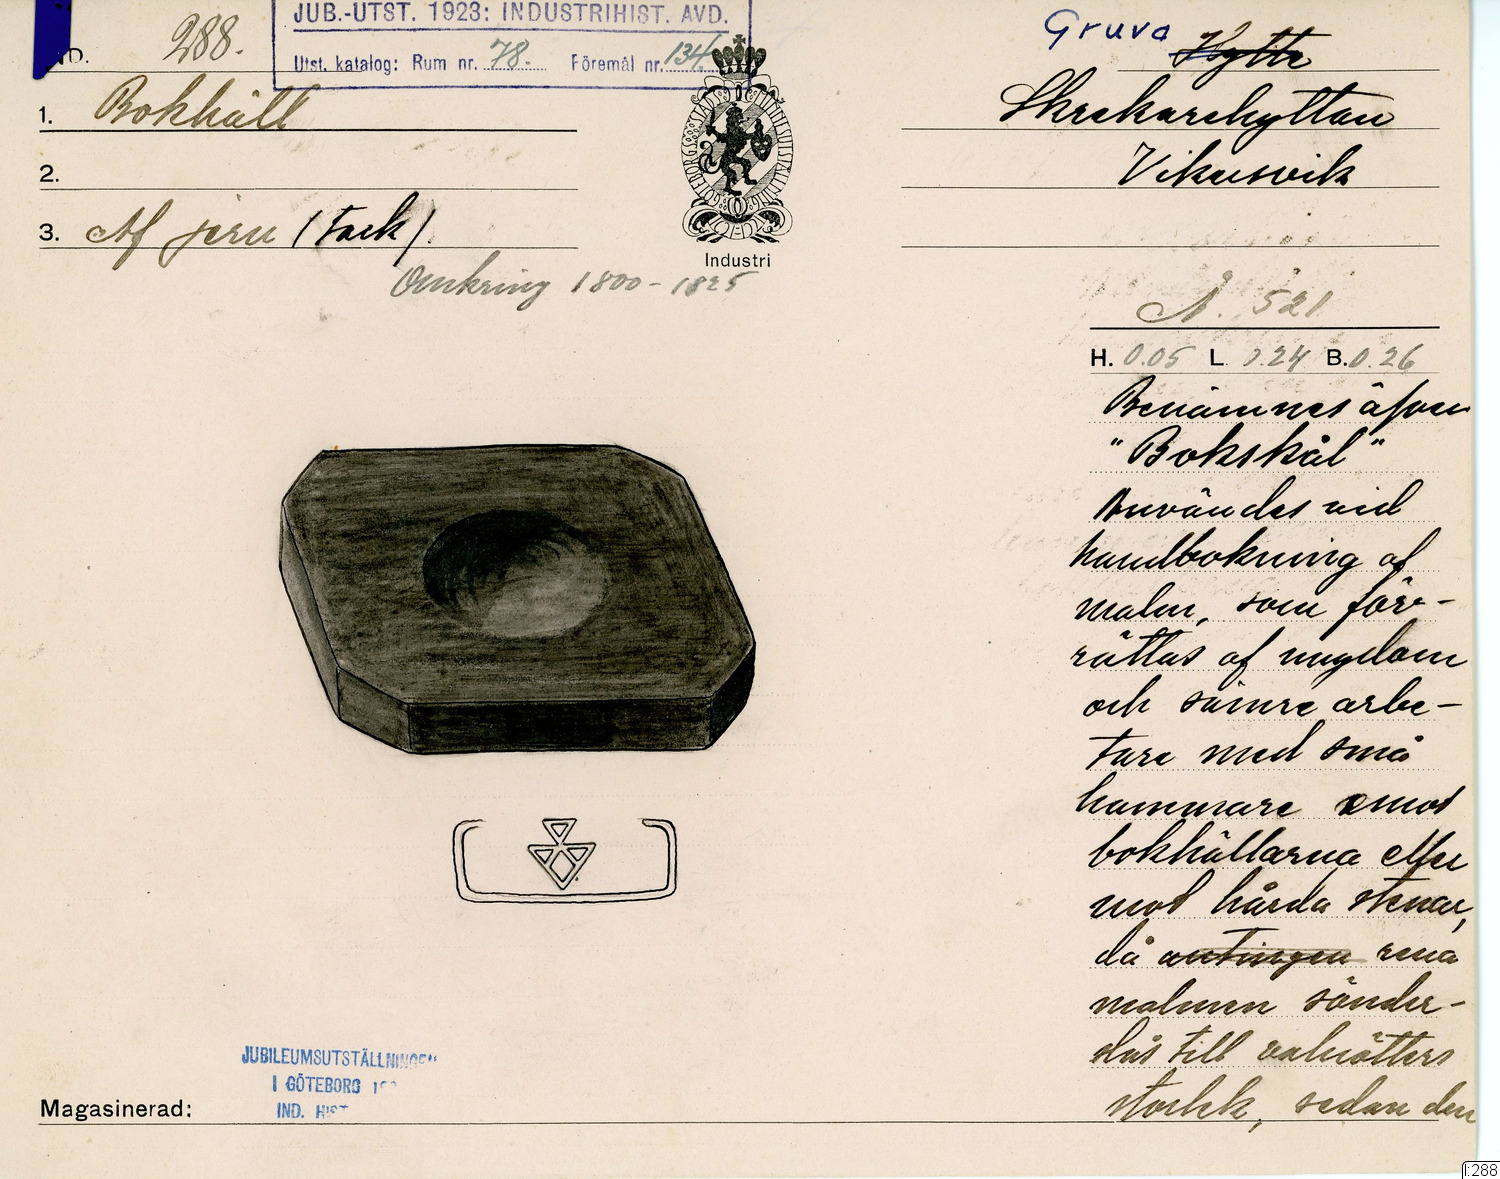 JUB.-UTST. 1923: INDUSTRIHIST. AVD.
Utst. katalog: Rum nr. 78. Föremål nr. 134.
ND. 288.
1. Bokhäll
2.
3. Af jern (Tack).
Omkring 1800-1825
GÖTEBORGS STADS
Industri
Gruva Hytte
Skrekarehyttan
Vikersvik
N. 521
H. 0.05 L 0.24 B. 0.26
Benämnes äfven
"Bokskål"
Användes vid
handbokning af
malm, som för-
rättas af ungdom
och sämre arbe-
tare med små
hammare emot
bokhällarna eller
mot hårda stenar,
då antingen rena
malmen sönder-
slås till valnötters
storlek, sedan den
JUBILEUMSUTSTÄLLNINGEN
I GÖTEBORG
IND. HIST
Magasinerad:
I:288